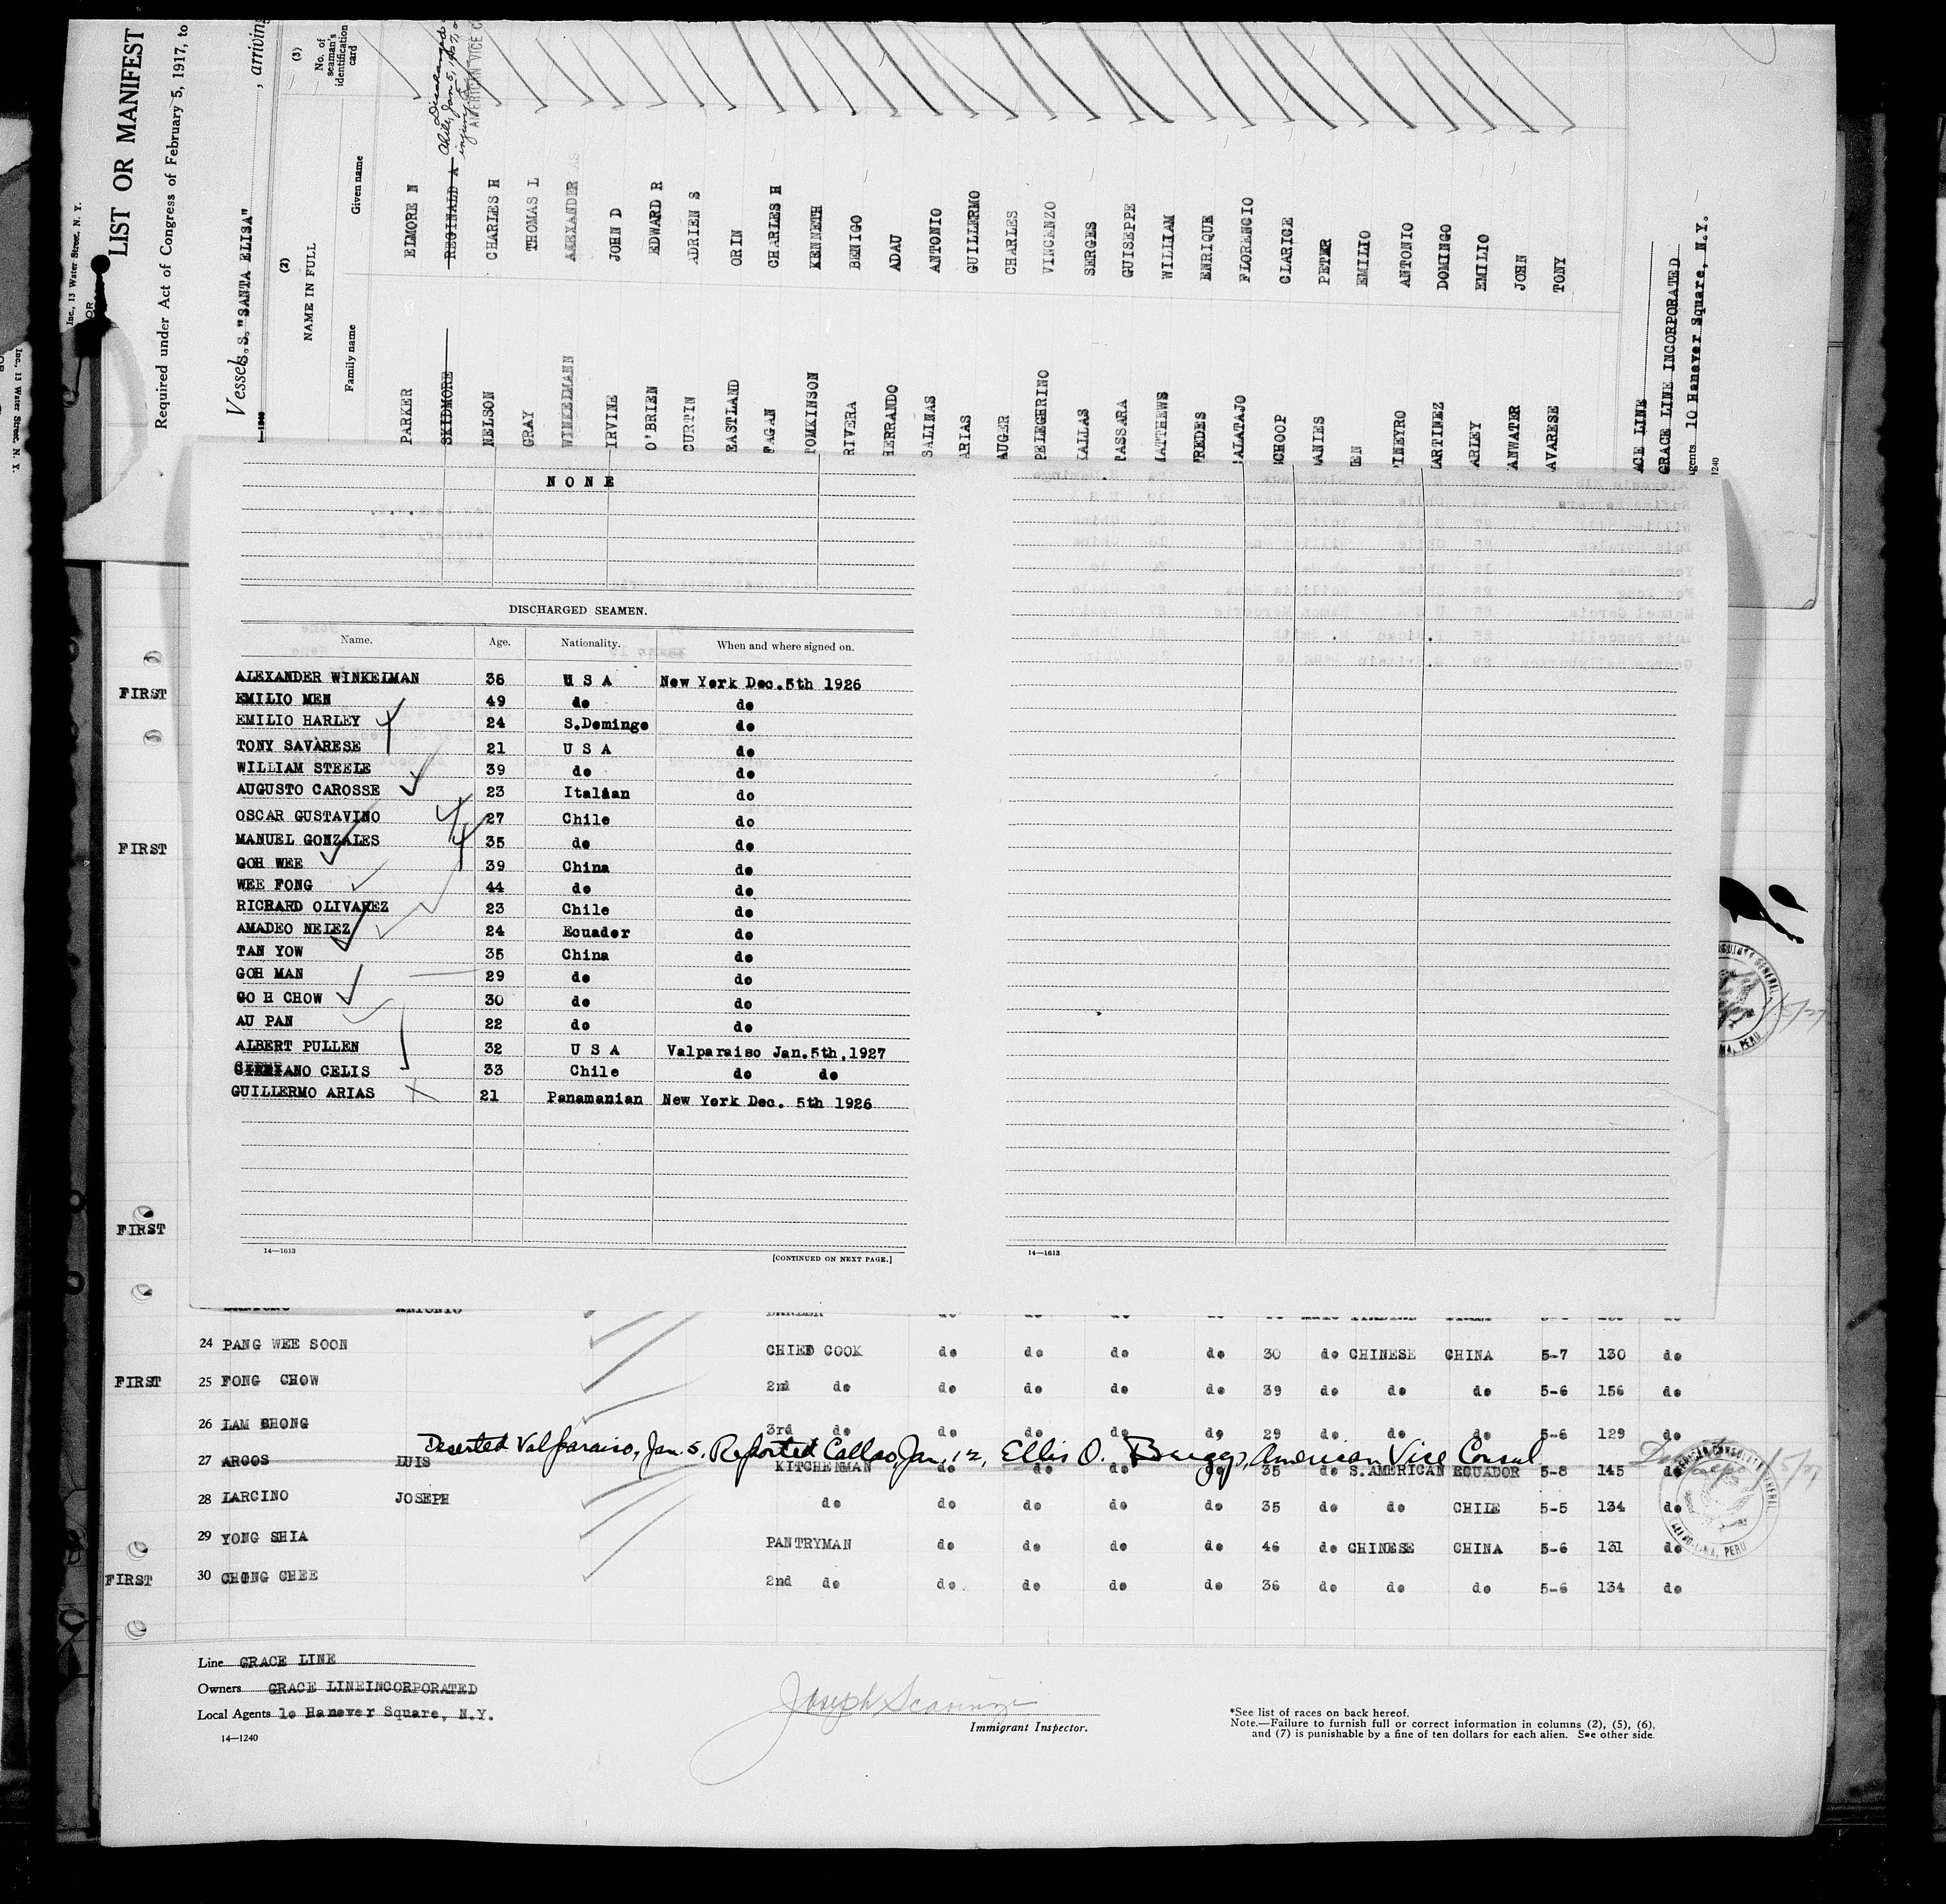 LIST OR MANIFEST
Required under Act of Congress of February 5, 1917, to
Vessel S.S. "SANTA ELISA" , arriving
Inc., 13 Water Street, N. Y.
Inc., 13 Water Street, N. Y.
(2)
(3)
NAME IN FULL
No. of seaman's identification card
Family name Given name
PARKER ELMORE N
SKIDMORE REGINALD A
NELSON CHARLES H
GRAY THOMAS L
WINKELMANN
IRVINE JOHN D
O'BRIEN EDWARD R
CURTIN ADRIEN S
EASTLAND ORIN
FAGAN CHARLES H
TOMKINSON KENNETH
RIVERA BENIGO
HERRANDO ADAU
SALINAS ANTONIO
ARIAS GUILLERMO
AUGER CHARLES
PELEGHRINO VINCENZO
KALLAS SERGES
PASSARA GUISEPPE
MATTHEWS WILLIAM
REDES ENRIQUE
ALATAJO FLORENCIO
CHOOP CLARICE
ANIES PETER
EN EMILIO
INEYRO ANTONIO
ARTINEZ DOMINGO
ARLEY EMILIO
ANWATER JOHN
AVARESE TONY
ACE LINE
GRACE LINE INCORPORATED
gents 10 Hanever Square, N.Y.
1240
NONE
DISCHARGED SEAMEN.
Name. Age. Nationality. When and where signed on.
ALEXANDER WINKELMAN 36 U S A New York Dec.5th 1926
EMILIO MEN 49 do do
EMILIO HARLEY 24 S.Domingo do
TONY SAVARESE 21 U S A do
WILLIAM STEELE 39 do do
AUGUSTO CAROSSE 23 Italian do
OSCAR GUSTAVINO 27 Chile do
MANUEL GONZALES 35 do do
GOH WEE 39 China do
WEE FONG 44 do do
RICHARD OLIVAREZ 23 Chile do
AMADEO NELEZ 24 Ecuador do
TAN YOW 35 China do
GOH MAN 29 do do
GO H CHOW 30 do do
AU PAN 22 do do
ALBERT PULLEN 32 U S A Valparaiso Jan.5th,1927
CELIS 33 Chile do do
GUILLERMO ARIAS 21 Panamanian New York Dec. 5th 1926
14—1613 [CONTINUED ON NEXT PAGE.]
14—1613
FIRST
FIRST
FIRST
ANTONIO
24 PANG WEE SOON CHIEF COOK do do do do 30 do CHINESE CHINA 5-7 130 do
FIRST 25 FONG CHOW 2nd do do do do do 39 do do do 5-6 156 do
26 LAM CHONG 3rd do do do do do 29 do do do 5-6 129 do
Deserted Valparaiso, Jan. 5. Reported Callao, Jan. 12, Ellis O. Briggs, American Vice Consul
27 ARCOS LUIS KITCHENMAN do do do do 35 do S.AMERICAN ECUADOR 5-8 145 do
28 LARCINO JOSEPH do do do do do 35 do do CHILE 5-5 134 do
29 YONG SHIA PANTRYMAN do do do do 46 do CHINESE CHINA 5-6 131 do
FIRST 30 CHONG CHEE 2nd do do do do do 36 do do do 5-6 134 do
Line GRACE LINE
Owners GRACE LINEINCORPORATED
Local Agents 1o Hanever Square, N.Y.
14—1240
Immigrant Inspector.
*See list of races on back hereof.
Note.—Failure to furnish full or correct information in columns (2), (5), (6),
and (7) is punishable by a fine of ten dollars for each alien. See other side.